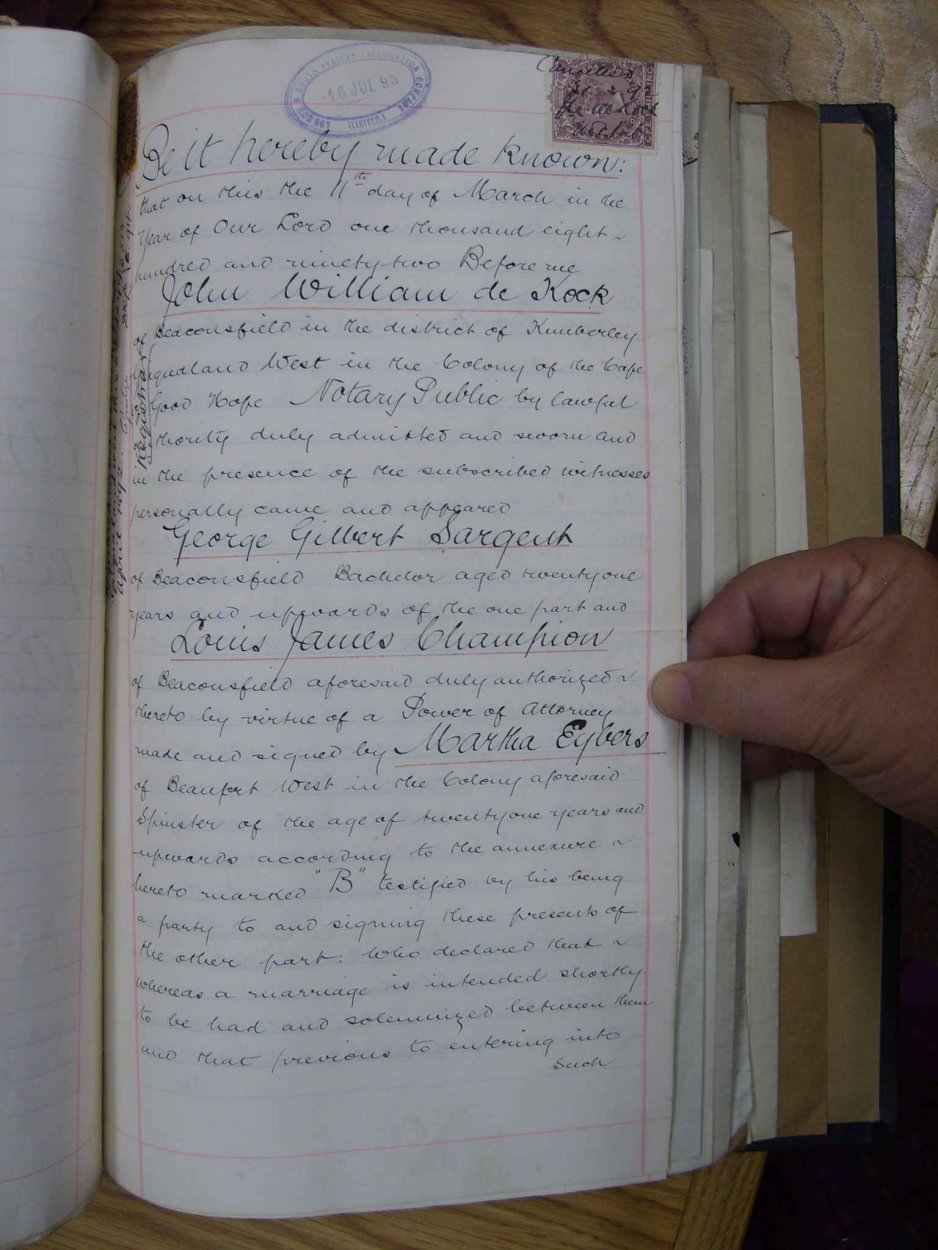 SOUTH AFRICAN EXPLORATION COMPANY
16 JUL 95
(LIMITED)
Cancelled
de Kock
Not. Pub
Be it hereby made known:
that on this the 11th day of March in the
Year of Our Lord one thousand eight ~
hundred and ninety two Before me
John William de Kock
of Beaconsfield in the district of Kimberley
iqualand West in the Colony of the Cape
Good Hope Notary Public by lawful
thority duly admitted and sworn and
in the presence of the subscribed witnesses
personally came and appeared
George Gilbert Sargent
of Beaconsfield Bachelor aged twentyone
years and upwards of the one part and
Louis James Champion
of Beaconsfield aforesaid duly authorized ~
thereto by virtue of a Power of Attorney
made and signed by Martha Eybers
of Beaufort West in the Colony aforesaid
Spinster of the age of twentyone years and
upwards according to the annexure ~
hereto marked "B" testified by his being
a party to and signing these presents of
the other part: Who declared that ~
whereas a marriage is intended shortly
to be had and solemnized between them
and that previous to entering into
such